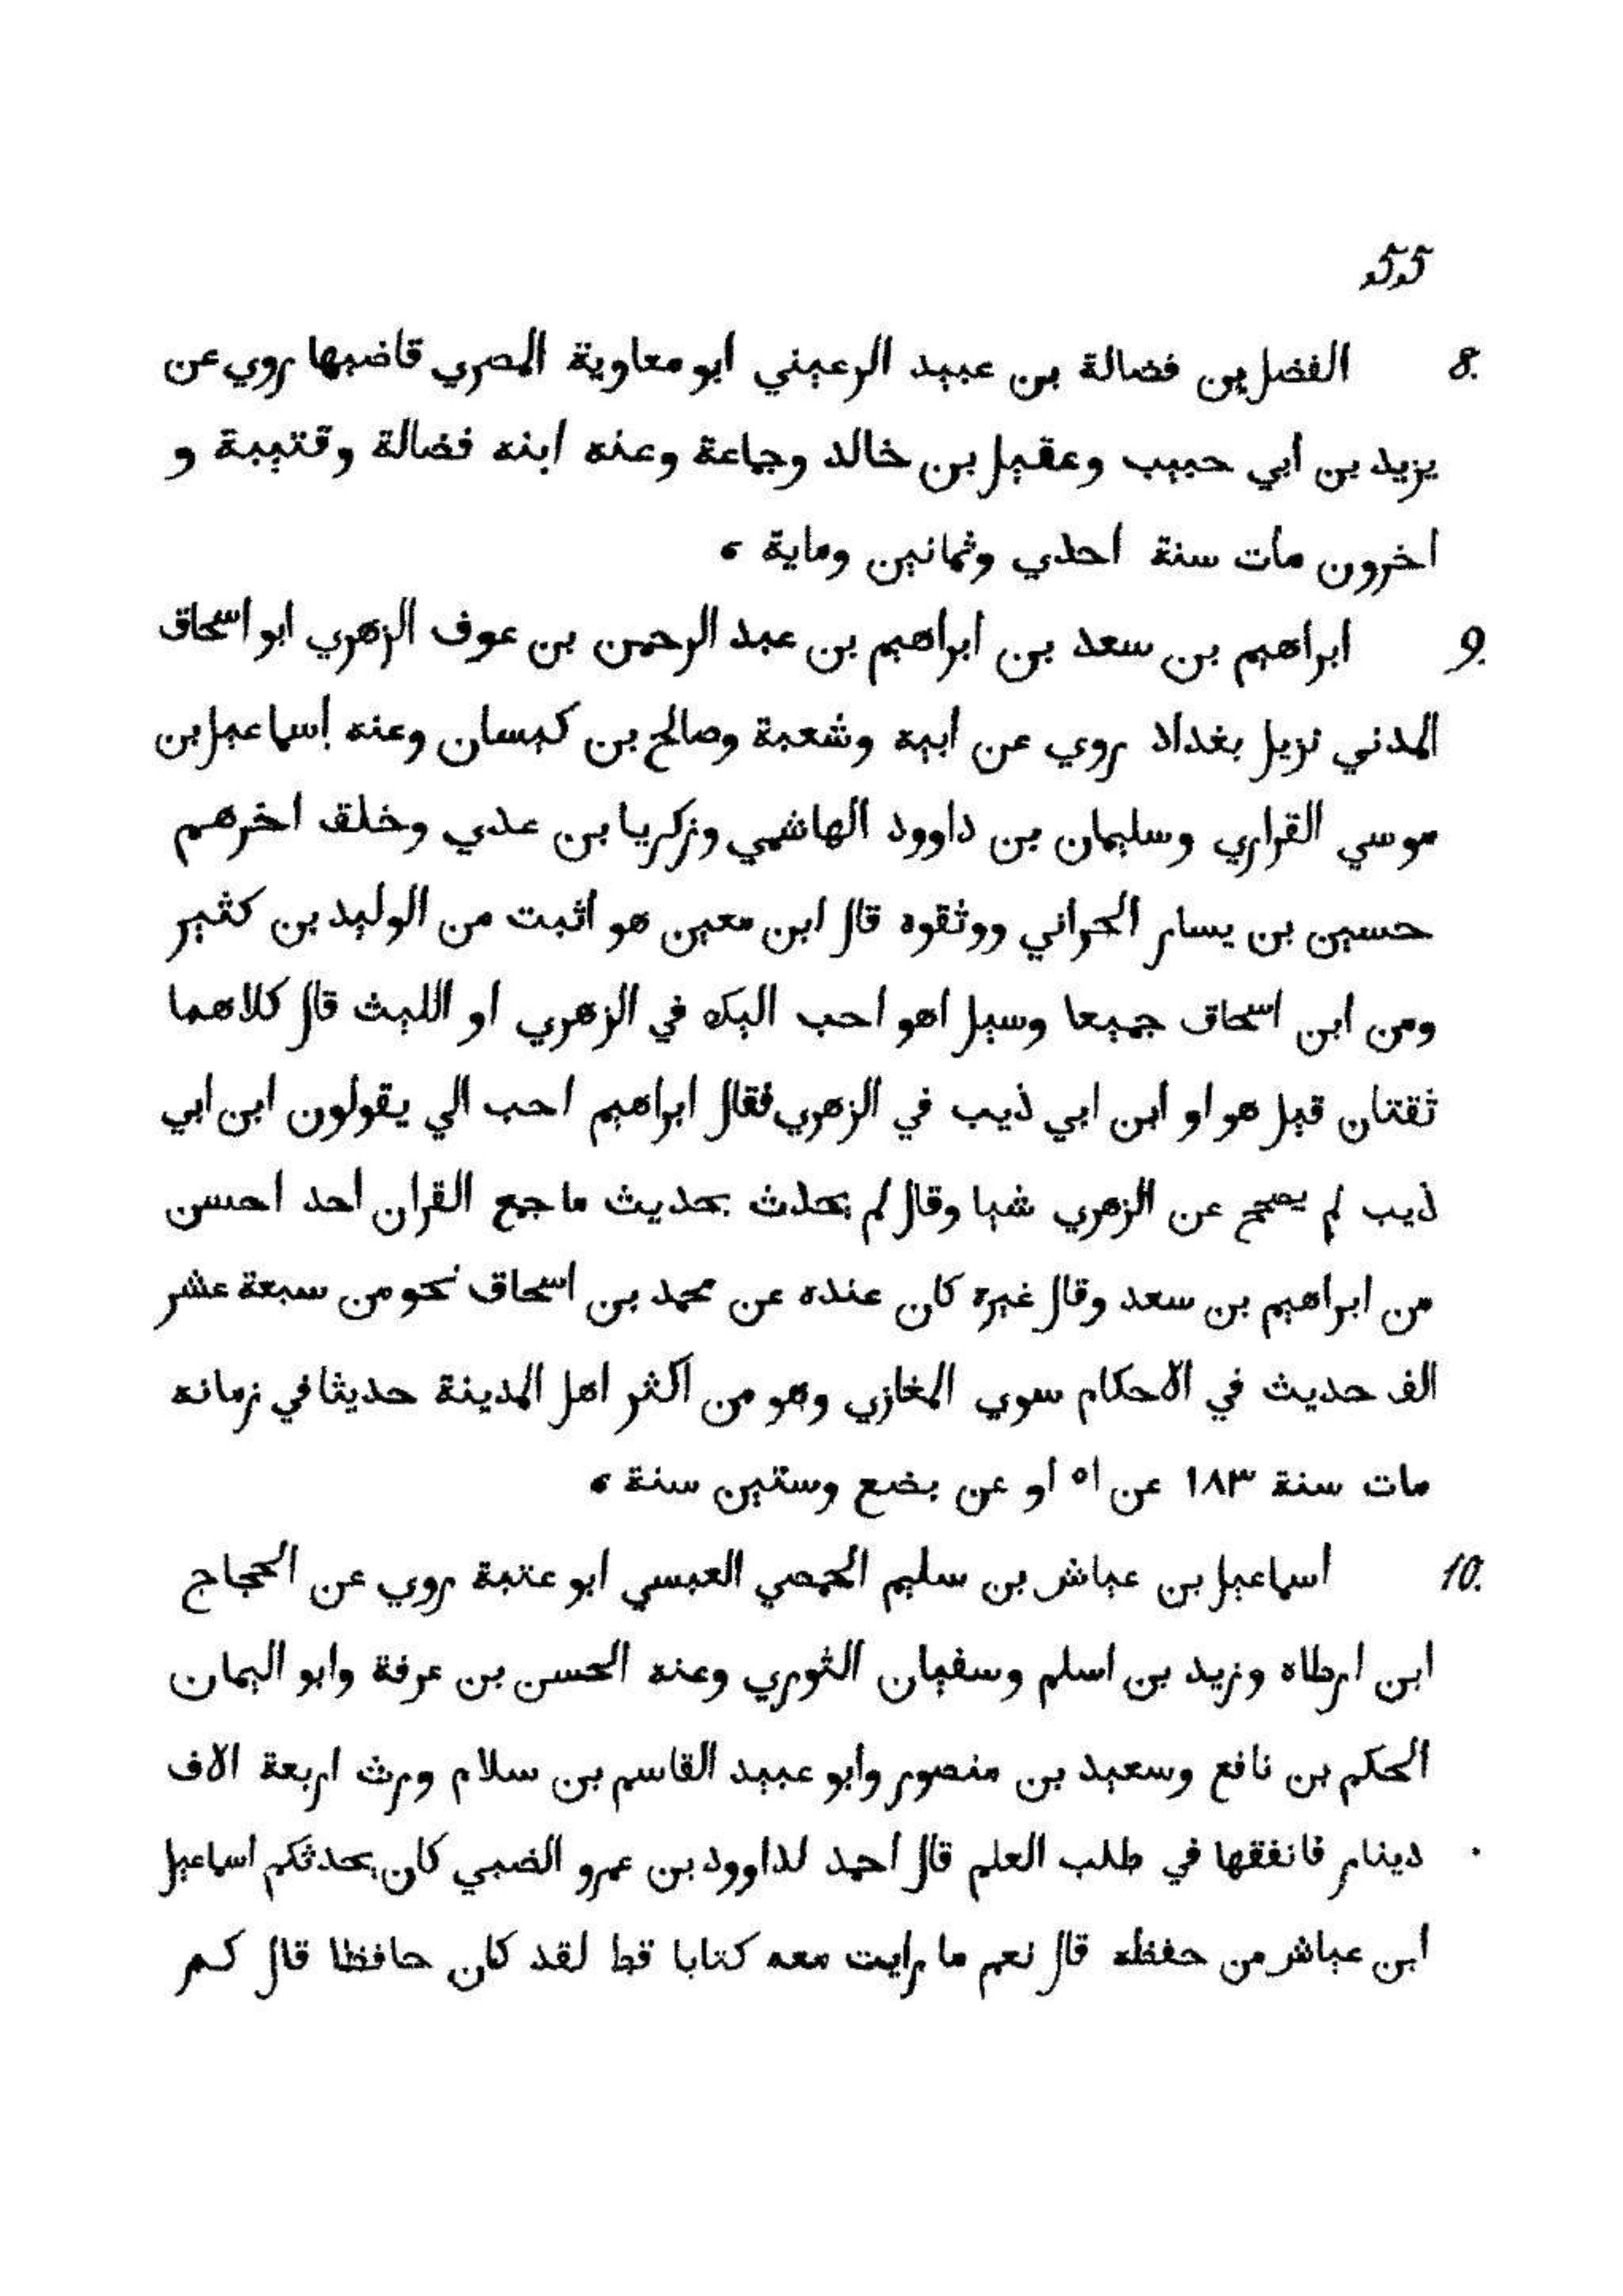 55
8. الفضل بن فضالة بن عبيد الرعيني ابو معاوية المصري قاضيها روي عن
يزيد بن ابي حبيب وعقيل بن خالد وجماعة وعنه ابنه فضالة وقتيبة و
اخرون مات سنة احدي وثمانين وماية ،
9. ابراهيم بن سعد بن ابراهيم بن عبد الرحمن بن عوف الزهري ابو اسحاق
المدني نزيل بغداد روي عن ابيه وشعبة وصالح بن كيسان وعنه إسماعيل بن
موسي القراري وسليمان بن داوود الهاشمي وزكريا بن عدي وخلق اخرهم
حسين بن يسار الحراني ووثقوه قال ابن معين هو اثبت من الوليد بن كثير
ومن ابن اسحاق جميعا وسيل اهو احب اليك في الزهري او الليث قال كلاهما
ثقتان قيل هو او ابن ابي ذيب في الزهري فقال ابراهيم احب الي يقولون ابن ابي
ذيب لم يصحح عن الزهري شيا وقال لم يحدث بحديث ما جمع القران احد احسن
من ابراهيم بن سعد وقال غيره كان عنده عن محمد بن اسحاق نحو من سبعة عشر
الف حديث في الاحكام سوي المغازي وهو من اكثر اهل المدينة حديثا في زمانه
مات سنة ١٨٣ عن ٥١ او عن بضع وستين سنة ،
10. اسماعيل بن عياش بن سليم الحمصي العبسي ابو عتبة روي عن الحجاج
ابن ارطاه وزيد بن اسلم وسفيان الثوري وعنه الحسن بن عرفة وابو اليمان
الحكم بن نافع وسعيد بن منصور وابو عبيد القاسم بن سلام ورث اربعة الاف
دينار فانفقها في طلب العلم قال احمد لداوود بن عمرو الضبي كان يحدثكم اسماعيل
ابن عياش من حفظه قال نعم ما رايت معه كتابا قط لقد كان حافظا قال كم